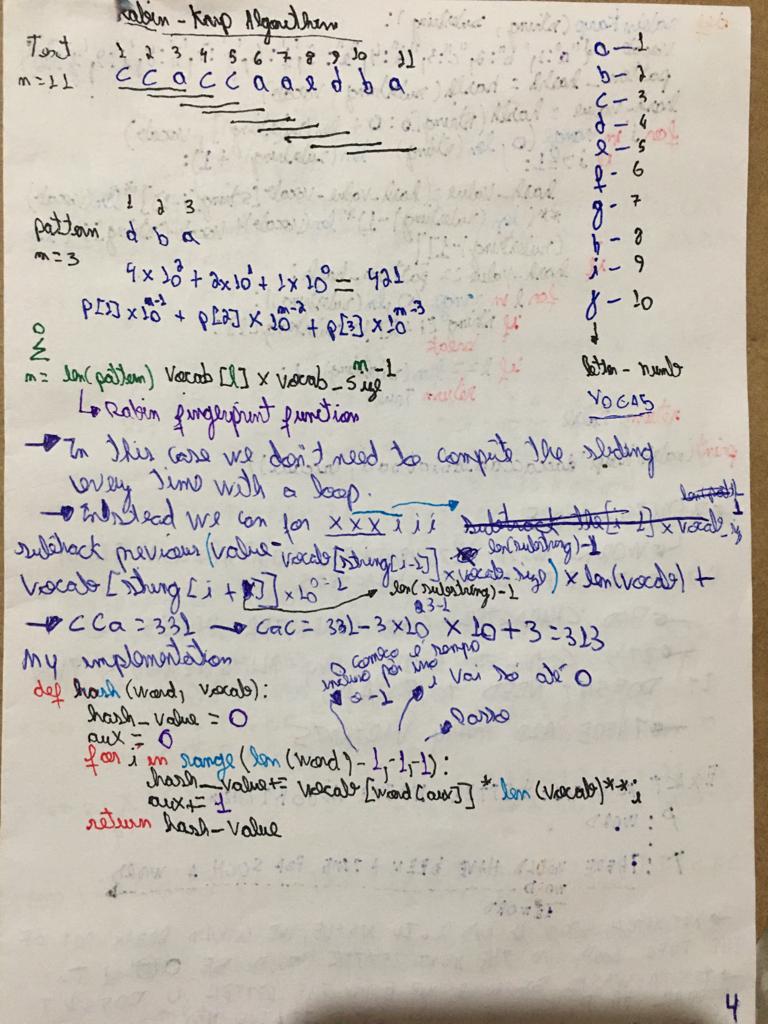 Rabin - Karp Algorithm
Text 1 2 3 4 5 6 7 8 9 10 11
n=11 c c a c c a a e d b a
a - 1
b - 2
c - 3
d - 4
e - 5
f - 6
g - 7
h - 8
i - 9
j - 10
letter - numb
VOCAB
1 2 3
pattern d b a
m=3
4 x 10² + 2x10¹ + 1x10⁰ = 421
p[1] x 10^m-1 + p[2] x 10^m-2 + p[3] x 10^m-3
0
Σ
m= len(pattern) vocab[l] x vocab_size^m-1
↳ Rabin fingerprint function
→ In this case we don't need to compute the sliding
every time with a loop.
→ Instead we can for x x x i i i
subtrack previous (value - vocab[string[i-1]] x vocab size^len(substring)-1) x len(vocab) +
vocab[string[i + ]] x 10⁰=1
len(substring)-1
→ CCa = 331 → cac = 331 - 3 x 10^3-1 x 10 + 3 = 313
My implementation
O começo é sempre
incluso por isso
o -1
i vai só até 0
Passo
def hash(word, vocab):
hash_value = 0
aux = 0
for i in range(len(word) - 1, -1, -1):
hash_value += vocab[word[aux]] * len(vocab)**i
aux += 1
return hash_value
4